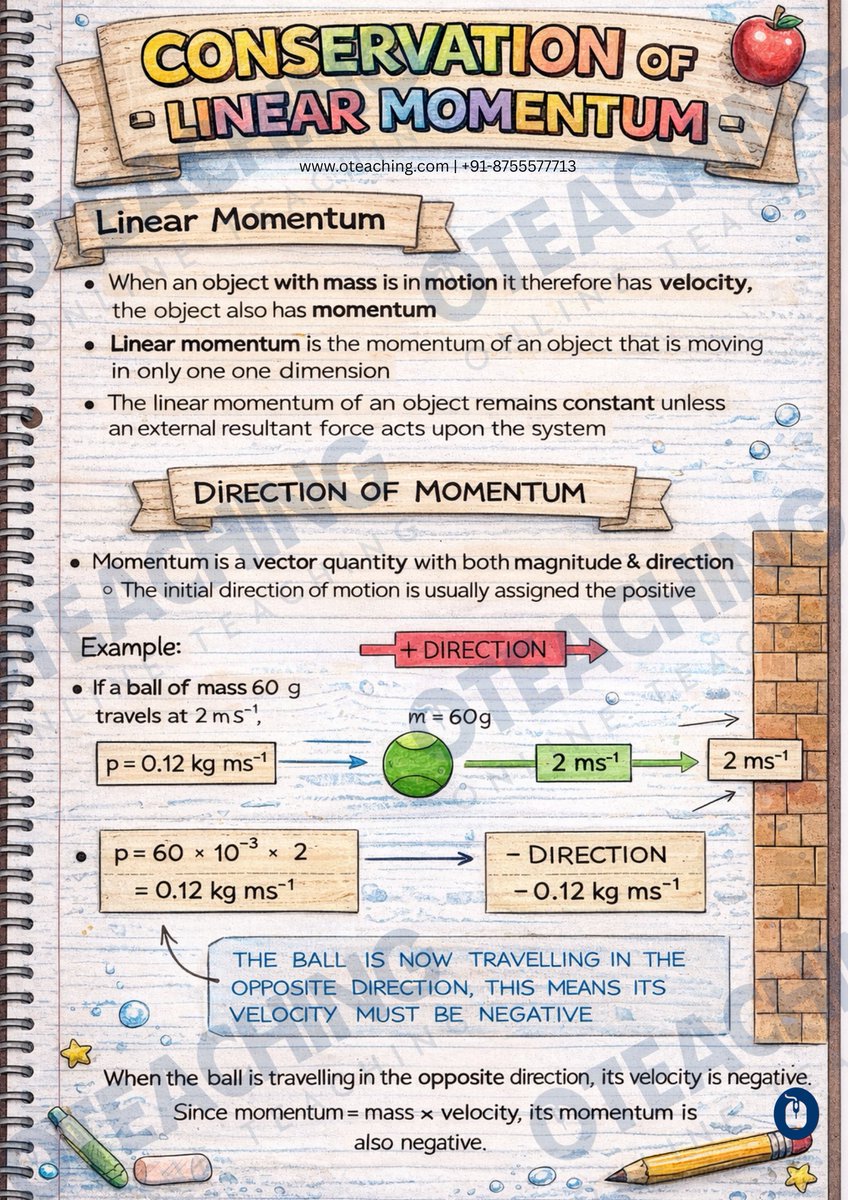 CONSERVATION OF
LINEAR MOMENTUM
www.oteaching.com | +91-8755577713
Linear Momentum
• When an object with mass is in motion it therefore has velocity,
the object also has momentum
• Linear momentum is the momentum of an object that is moving
in only one one dimension
• The linear momentum of an object remains constant unless
an external resultant force acts upon the system
DIRECTION OF MOMENTUM
• Momentum is a vector quantity with both magnitude & direction
○ The initial direction of motion is usually assigned the positive
Example:
+ DIRECTION
• If a ball of mass 60 g
travels at 2 ms⁻¹,
m = 60g
p = 0.12 kg ms⁻¹
2 ms⁻¹
2 ms⁻¹
• p = 60 × 10⁻³ × 2
= 0.12 kg ms⁻¹
− DIRECTION
− 0.12 kg ms⁻¹
THE BALL IS NOW TRAVELLING IN THE
OPPOSITE DIRECTION, THIS MEANS ITS
VELOCITY MUST BE NEGATIVE
When the ball is travelling in the opposite direction, its velocity is negative.
Since momentum = mass × velocity, its momentum is
also negative.
OTEACHING
ONLINE TEACHING